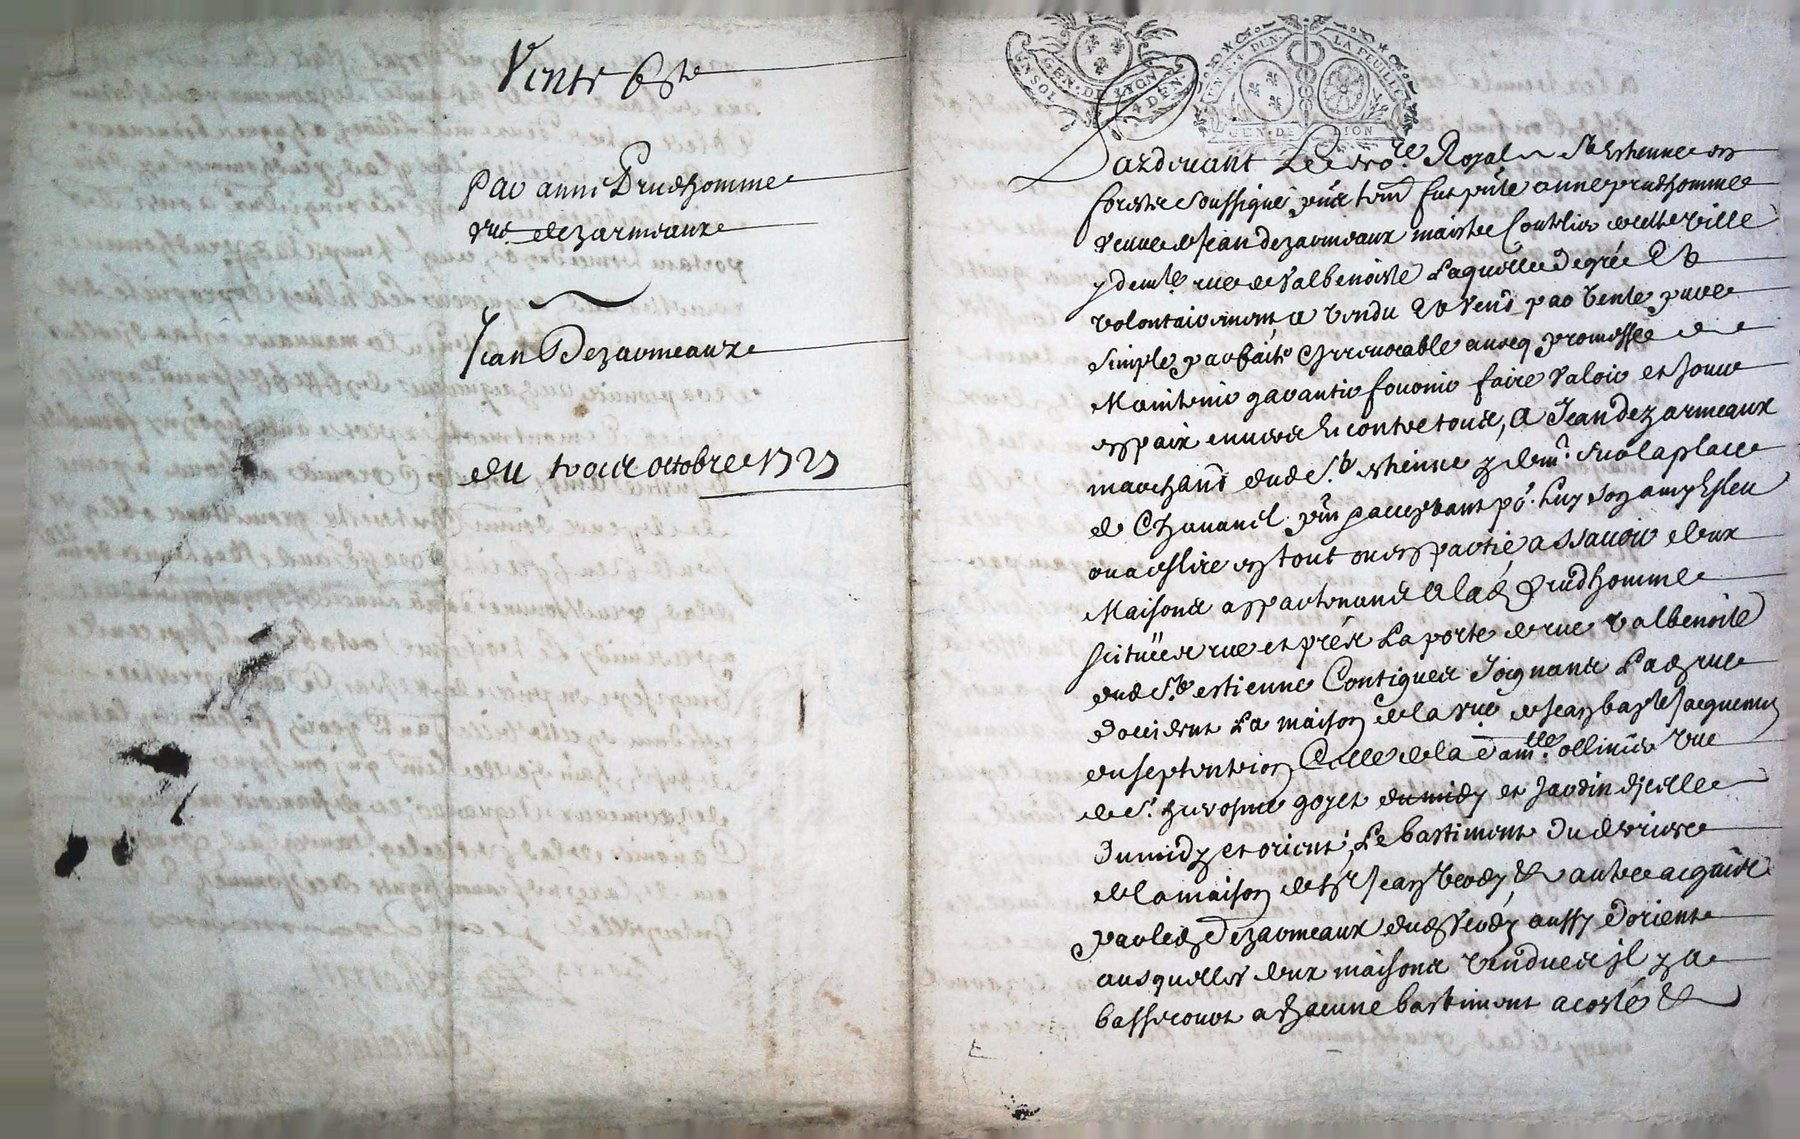 Vente
par anne Prudhomme
vve dezarmeaux
Jean Dezarmeaux
du trois octobre 1727
UN SOL
GEN. DE LYON
4 DEN.
LA FEUILLE
GEN. DE LION
Pardevant Le no.re Royal a St Estienne en
forestz soussigné futpnte anne prudhomme
veuve de Jean dezarmeaux maistre Coutelier de cette ville
y demte rue de Valbenoiste Laquelle de gré et
volontairement a vendu et vend par vente pure
simple, parfaite et irrevocable avecq promesse de
Maintenir garantir fournir faire valoir et Jouir
en paix envers et contre tous, A Jean dezarmeaux
marchand dud St estienne y demt. sur la place
de Chavanel pnt et acceptant pr. Luy son amy Esleu
ou a eslire en tout ou en partie assavoir deux
Maisons appartenant a lad prudhomme
scituées rue et prés La porte de rue valbenoite
dud St estienne Contigues Joignans Lad rue
d'occident La maison de la vve de Jean bapte Jacquemin
du septentrion Celle de la dam.lle ollinier vve
de Sr. goyet du midy et Jardin d'icelle
du midy et orient, Le bastiment du derriere
de la maison de Sr Jean verdy et autre acquise
par led Dezarmeaux dud verdy aussy d'orient
ausquelles deux maisons vendues il y a
basse court a chacune bastiment a costé et